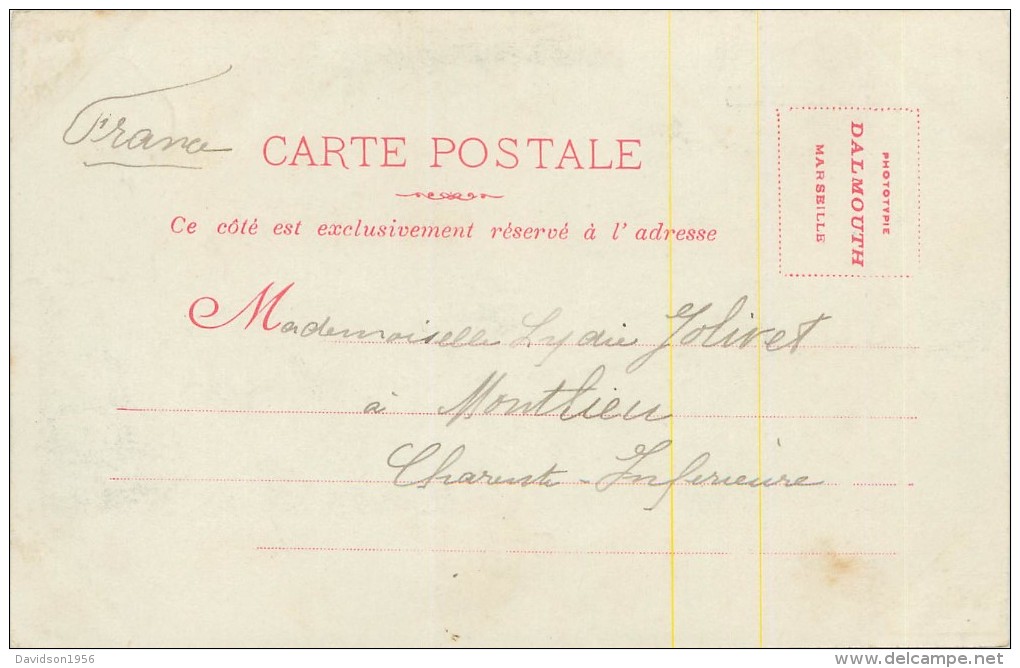 France
CARTE POSTALE
Ce côté est exclusivement réservé à l'adresse
PHOTOTYPIE
DALMOUTH
MARSEILLE
Mademoiselle Lydie Jolivet
à Montlieu
Charente-Inférieure
Davidson1956
delcampe.net